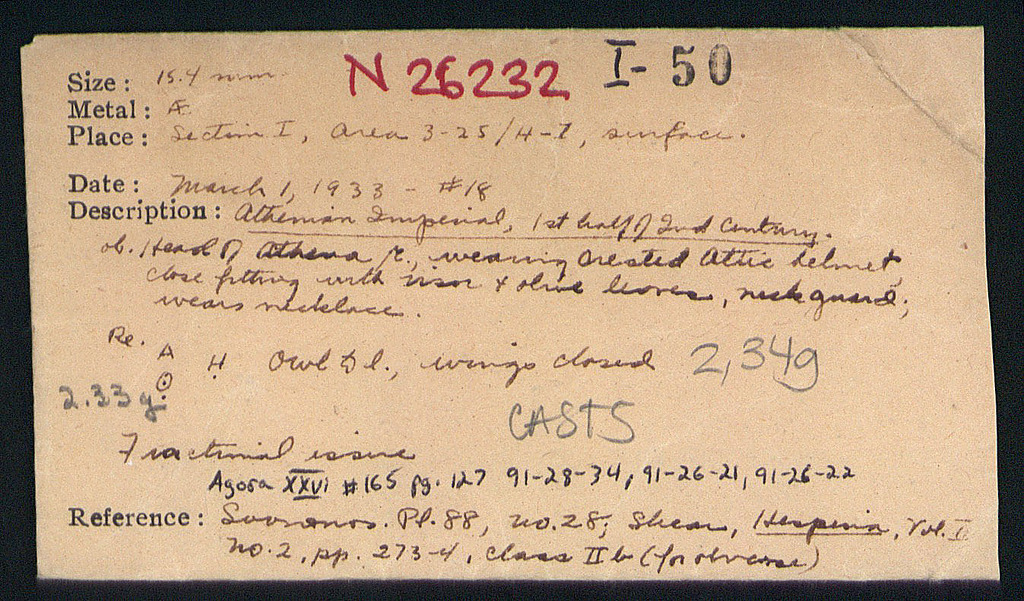 N 26232 I-50
Size: 15.4 mm.
Metal: Æ
Place: Section I, Area 3-25/H-I, surface.
Date: March 1, 1933 - #18
Description: Athenian Imperial, 1st half of 2nd Century.
ob. Head of Athena r., wearing crested Attic helmet,
close fitting with visor & olive leaves, neckguard;
wears necklace.
Re. A
H Owl to l., wings closed 2,34g
Θ
2.33g
CASTS
Fractional issue
Agora XXVI #165 pg. 127 91-28-34, 91-26-21, 91-26-22
Reference: Svoronos. Pl. 88, no. 28; Shear, Hesperia, Vol. II
no. 2, pp. 273-4, Class II b (for obverse)